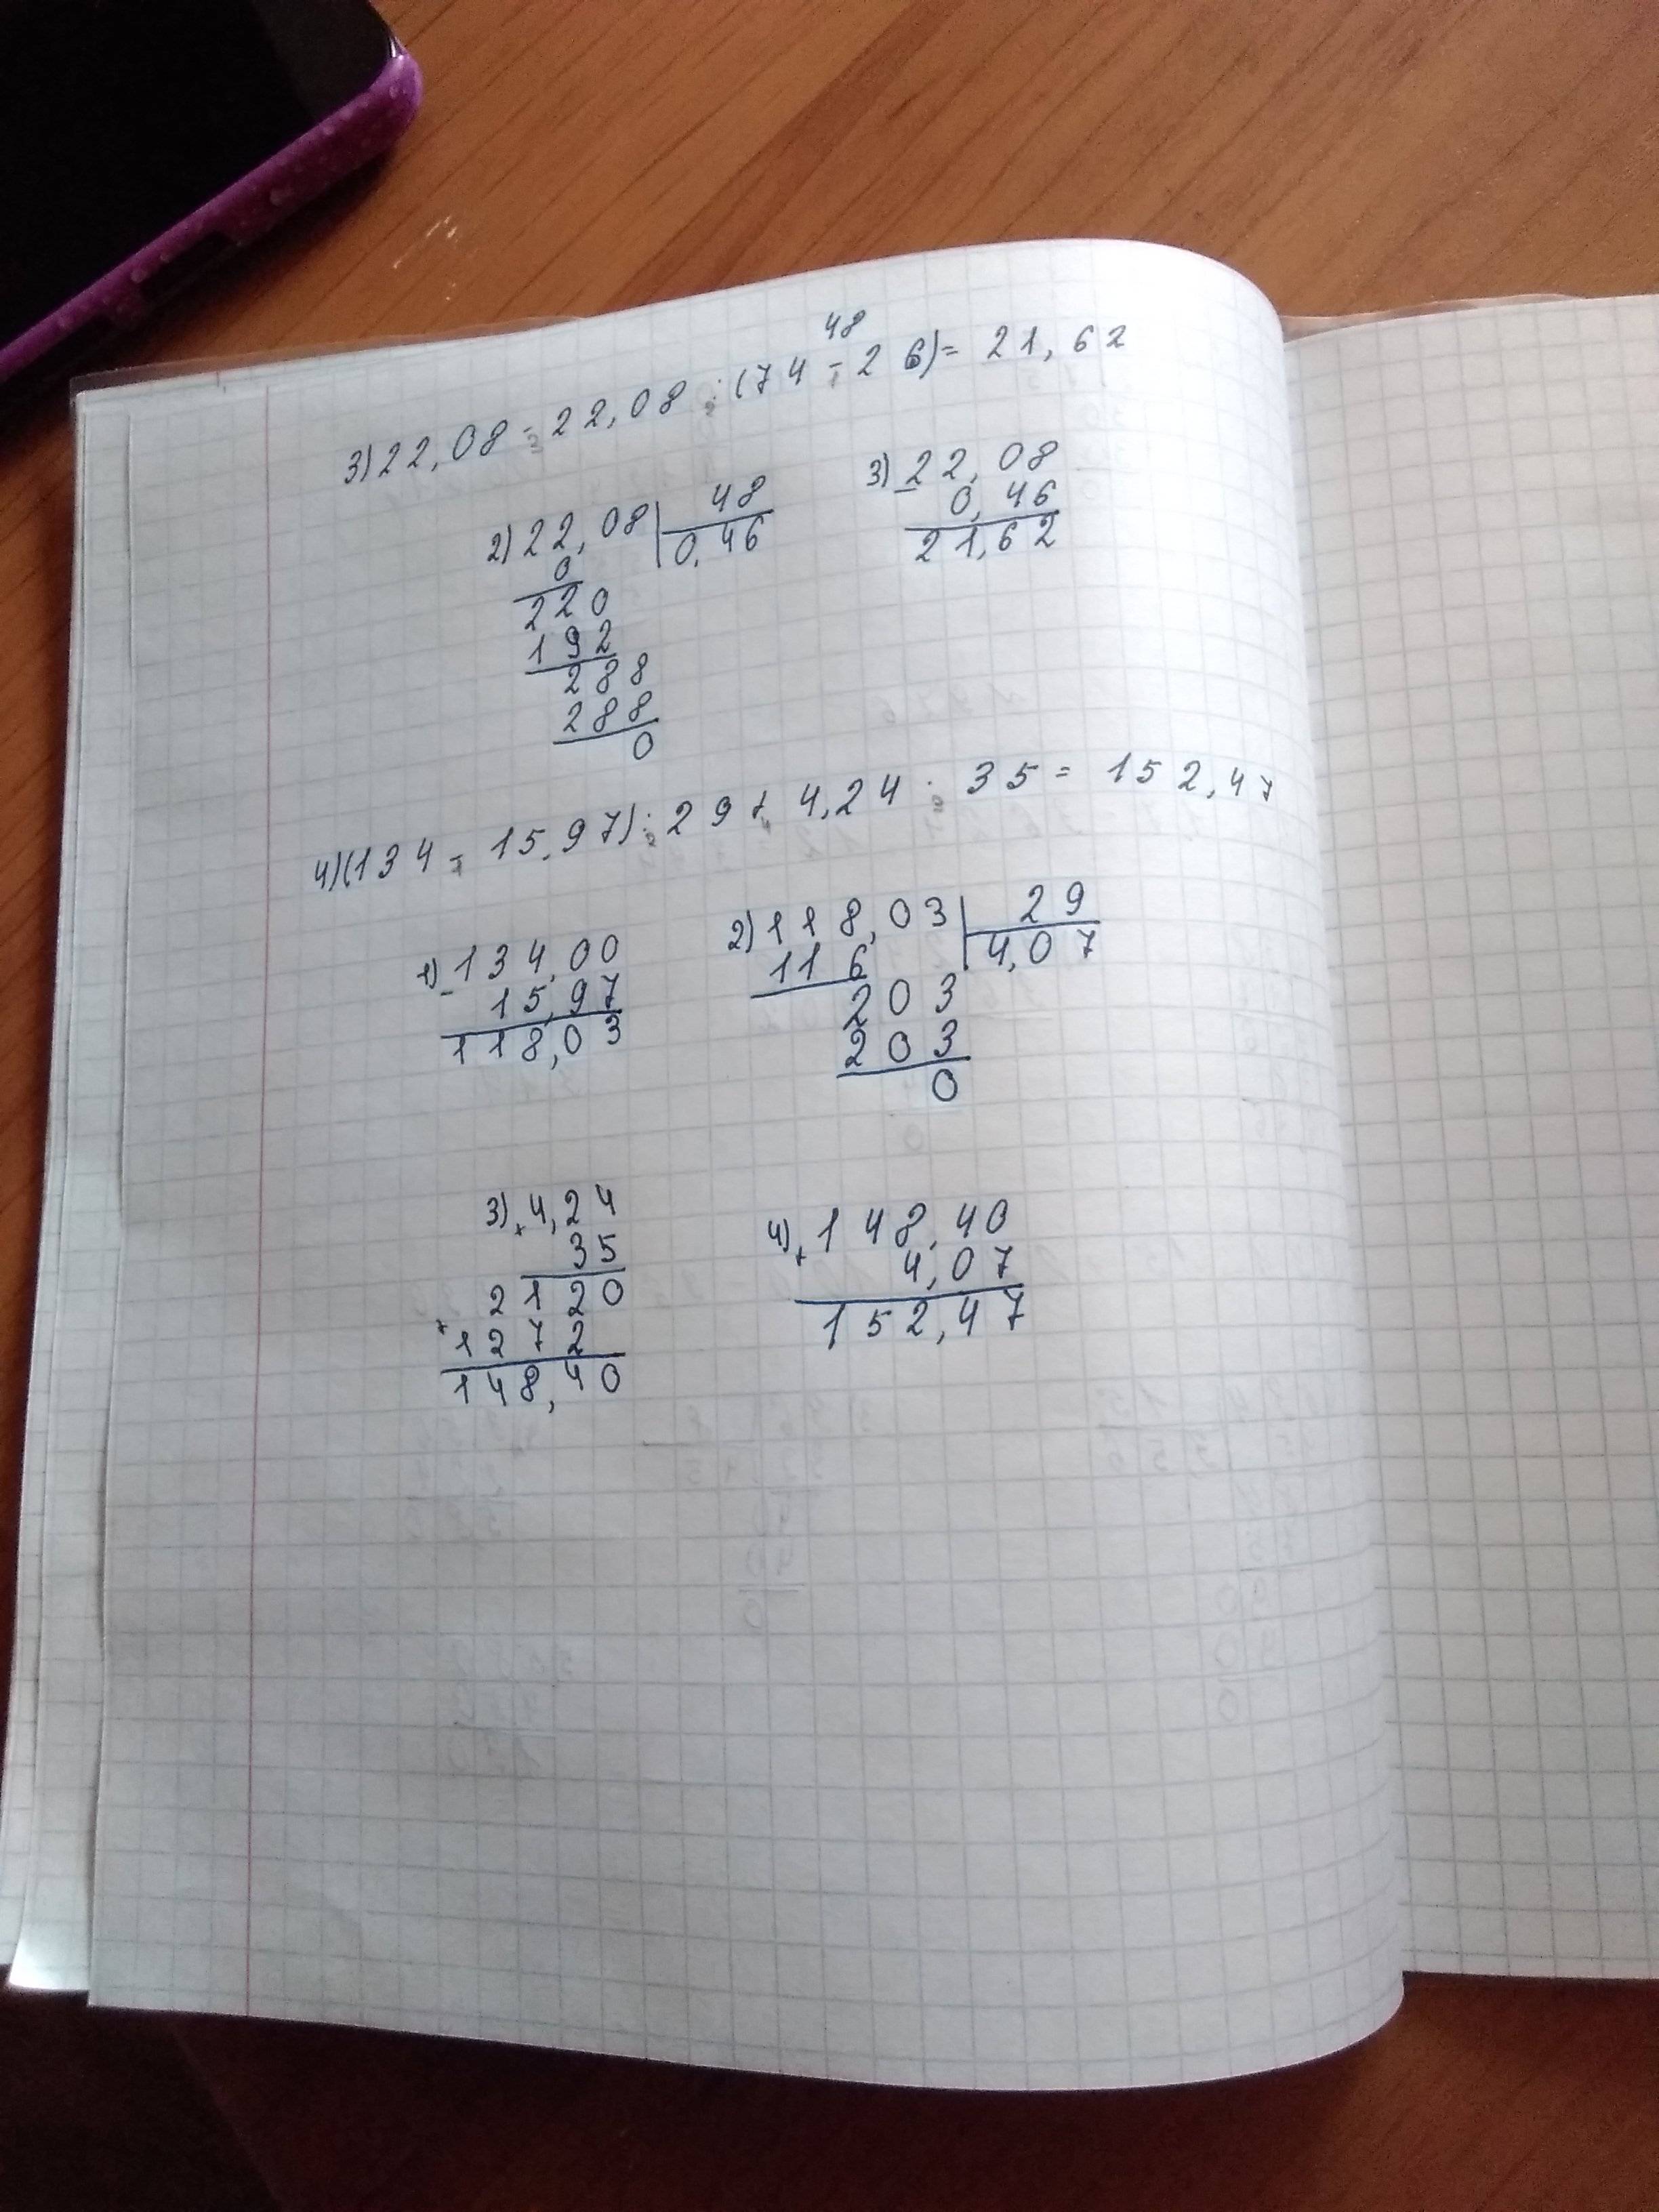 48
3) 22,08 - 22,08 : (74 - 26) = 21,62
2) 22,08 | 48
0
0,46
220
192
288
288
0
3) 22,08
- 0,46
21,62
4) (134 - 15,97) : 29 + 4,24 · 35 = 152,47
1) 134,00
- 15,97
118,03
2) 118,03 | 29
116
4,07
203
203
0
3) × 4,24
35
2120
+ 1272
148,40
4) + 148,40
4,07
152,47